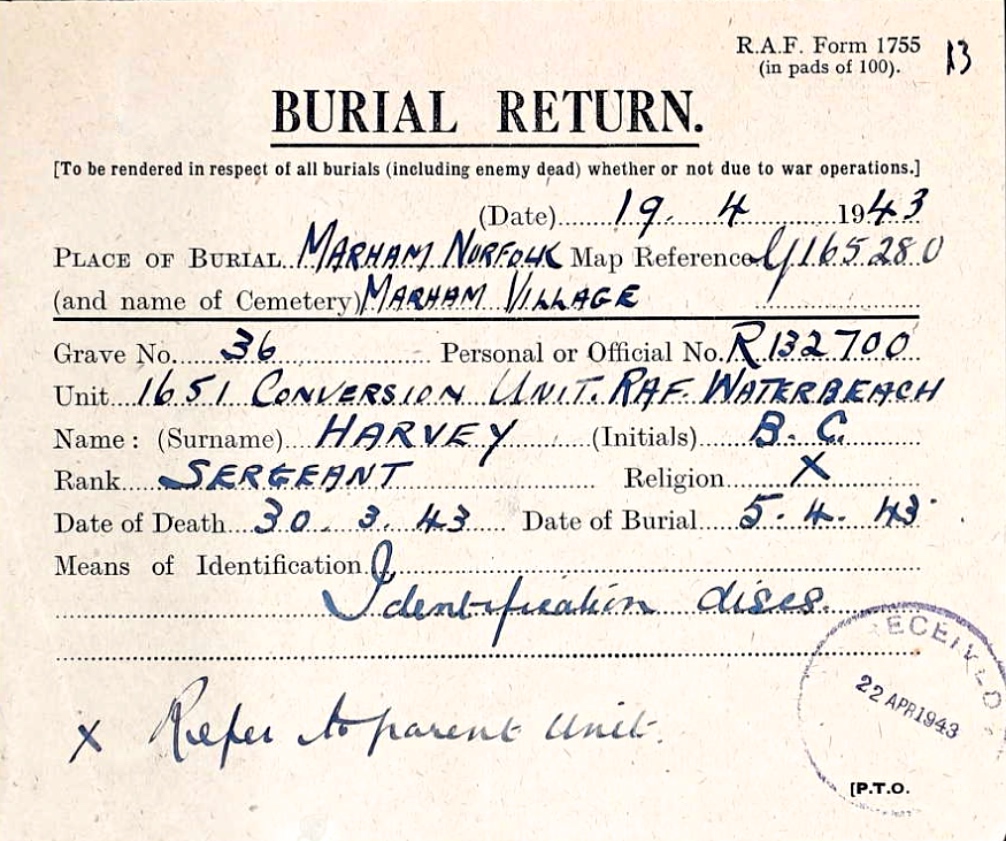 R.A.F. Form 1755 13
(in pads of 100).
BURIAL RETURN.
[To be rendered in respect of all burials (including enemy dead) whether or not due to war operations.]
(Date) 19. 4 1943
PLACE OF BURIAL MARHAM NORFOLK Map Reference G165280
(and name of Cemetery) MARHAM VILLAGE
Grave No. 36 Personal or Official No. R132700
Unit 1651 CONVERSION UNIT. RAF. WATERBEACH
Name: (Surname) HARVEY (Initials) B. C.
Rank SERGEANT Religion X
Date of Death 30. 3. 43 Date of Burial 5. 4. 43.
Means of Identification
Identification discs.
RECEIVED
22 APR 1943
x Refer to parent unit.
[P.T.O.